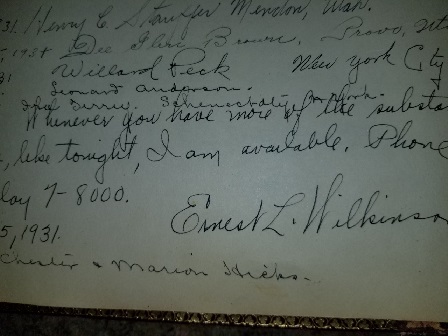 31. Henry C Stauffer Mendon, Utah.
, 1931 Dee Brown, Provo,
31 Willard Peck New York City
Leonard Anderson.
Schenectady, New York.
Whenever you have more of the substa
, like tonight, I am available. Phone
lay 7-8000.
Ernest L. Wilkinson
5, 1931.
Chester & Marion Hicks.